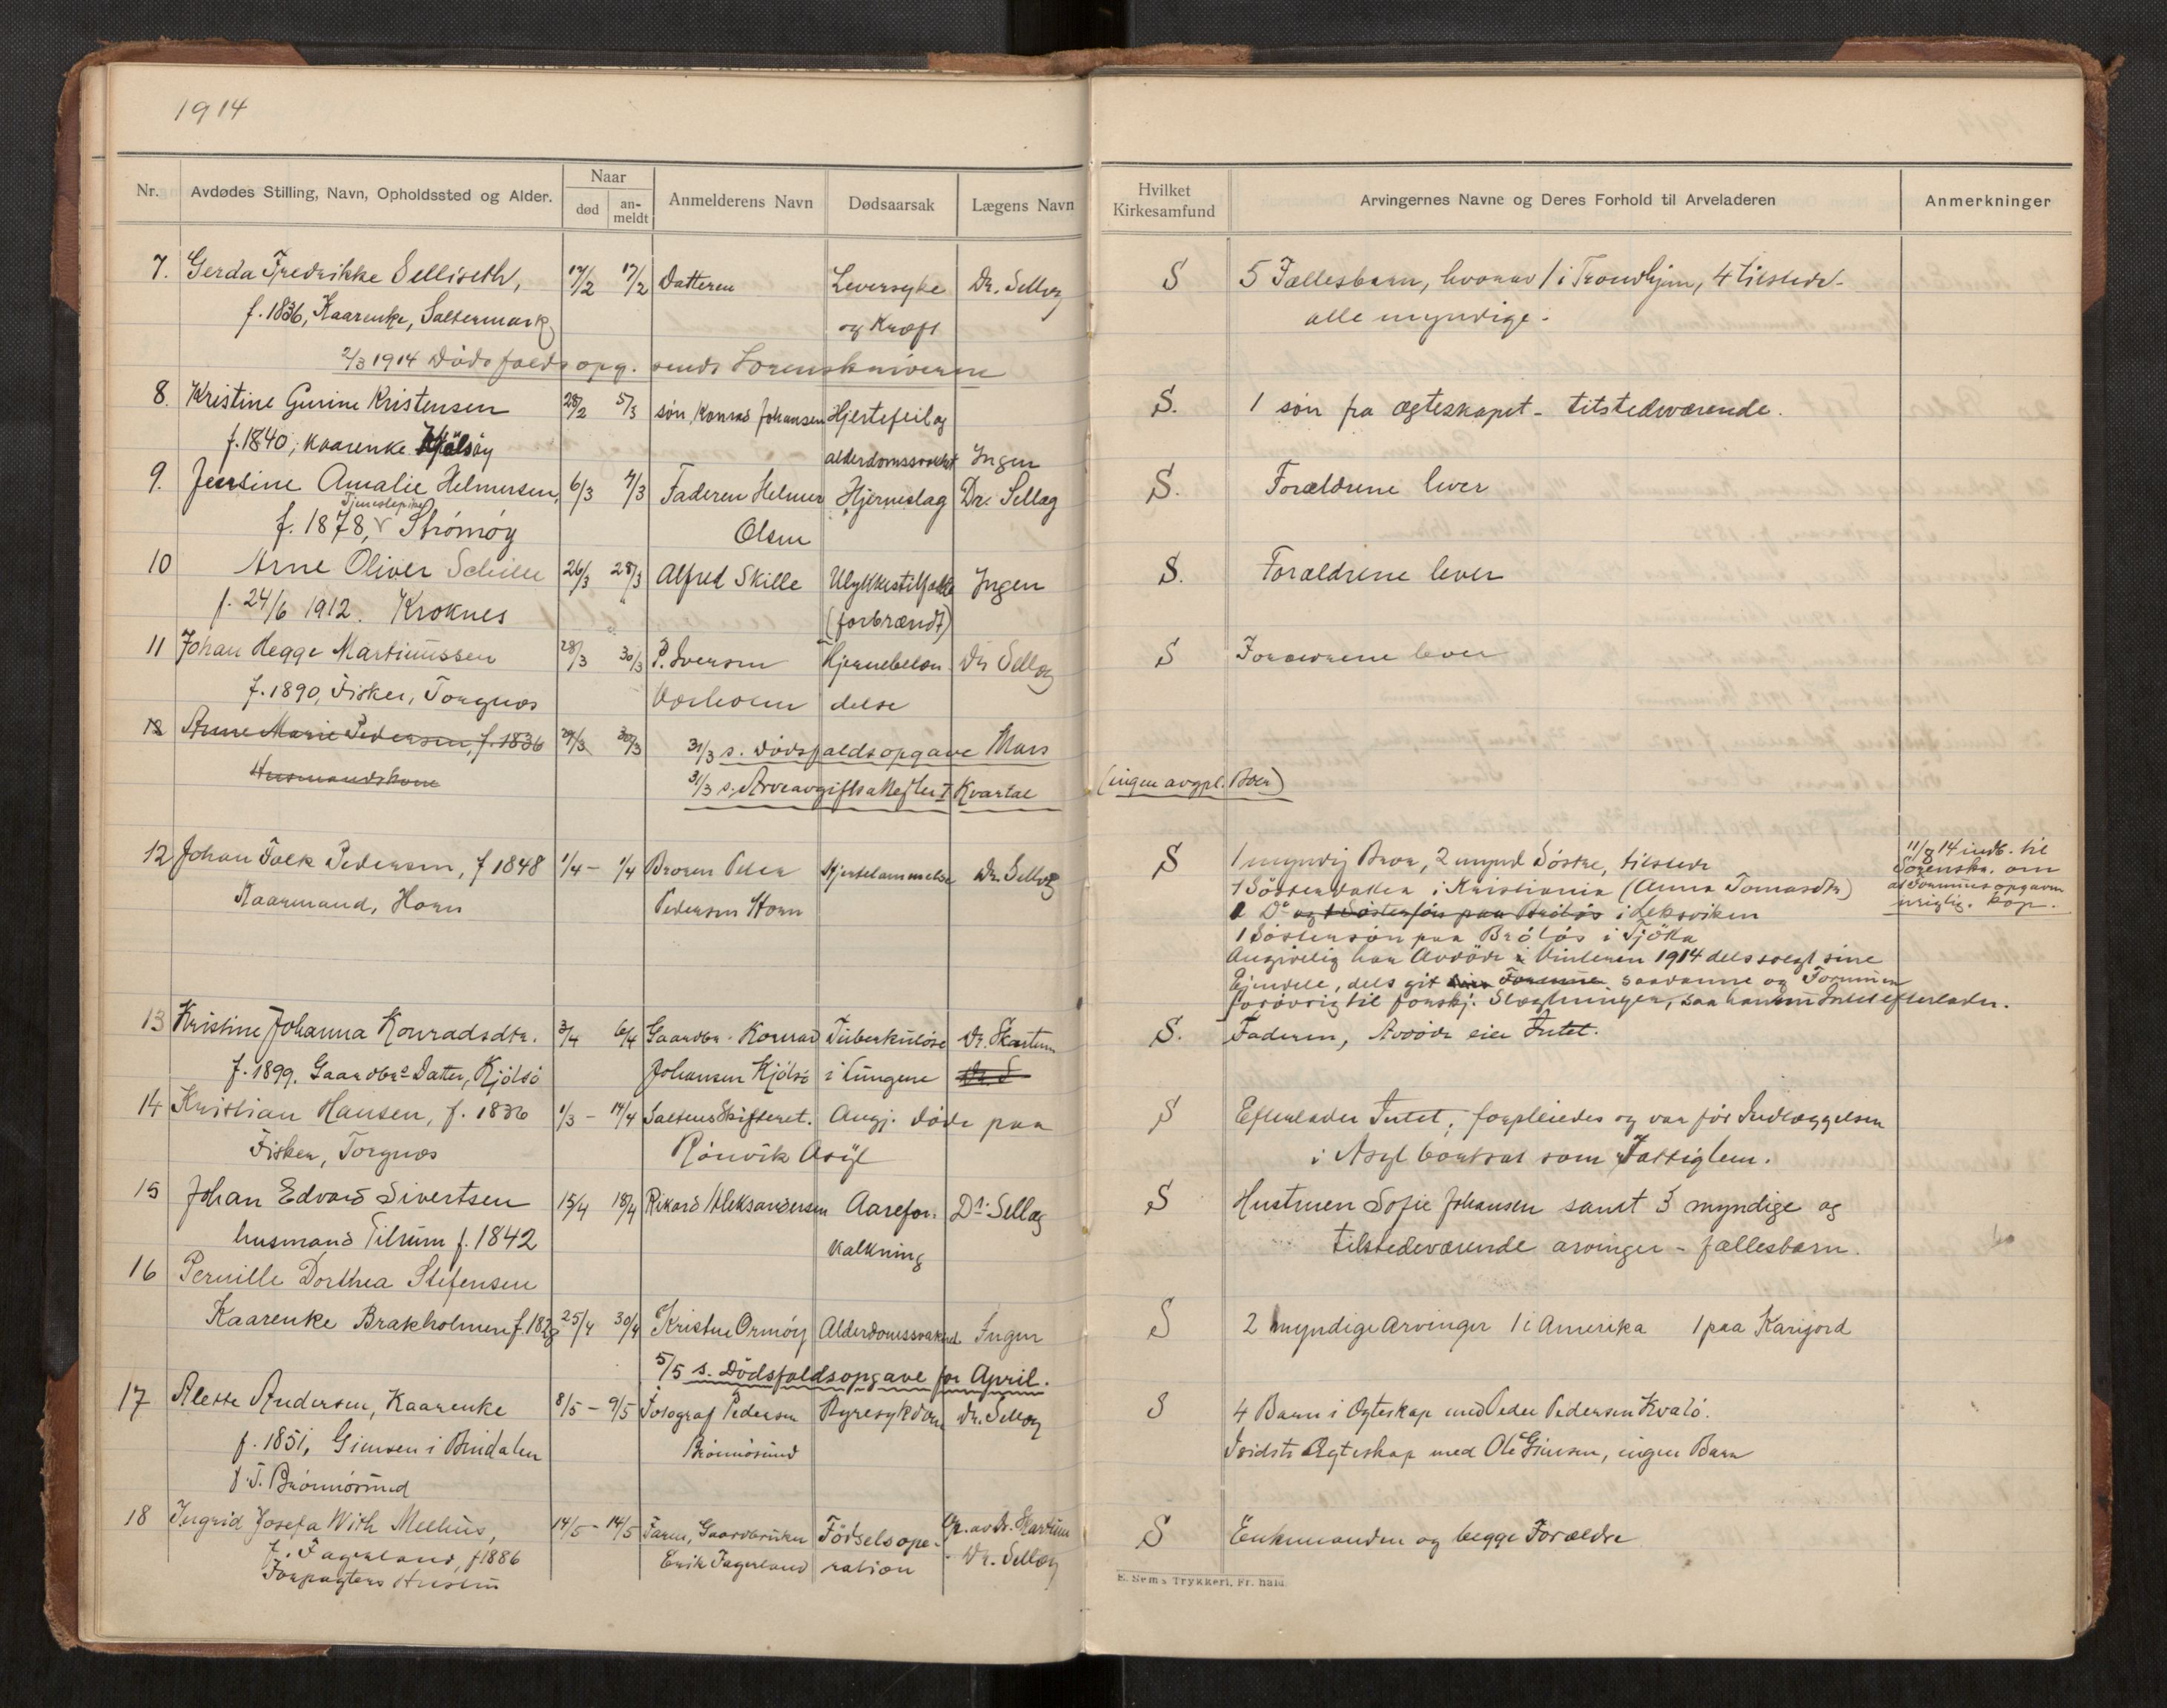 1914
Nr. Avdødes Stilling, Navn, Opholdssted og Alder. Naar død an-meldt Anmelderens Navn Dødsaarsak Lægens Navn Hvilket Kirkesamfund Arvingernes Navne og Deres Forhold til Arveladeren Anmerkninger
7. Gerda Fredrikke Selliseth, 17/2 17/2 Datteren Leversyke Dr. Sellæg S 5 Fællesbarn, hvorav 1 i Trondhjem, 4 tilstede -
f. 1836, Kaarenke, Saltermark og Kræft alle myndige.
2/3 1914 Dödsfaldsopg. sendt Sorenskriveren
8. Kristine Gurine Kristensen 28/2 5/3 søn, Konrad Johansen Hjertefeil og S. 1 søn fra ægteskapet - tilstedværende.
f. 1840, Kaarenke Kjølsøy alderdomssvakhet Ingen
9. Jensine Amalie Helmersen, 6/3 7/3 Faderen Helmer Hjerneslag Dr. Sellæg S. Forældrene lever
Tjenestepike
f. 1878, Strömöy Olsen
10 Arne Oliver Schille 26/3 28/3 Alfred Skille Ulykkestilfælde Ingen S. Forældrene lever
f. 24/6 1912. Kroknes (forbrændt)
11 Johan Hegge Martinussen 28/3 30/3 P. Iversen Hjernebetæn- Dr Sellæg S Forældrene lever
f. 1890, Fisker, Torgnes delse
12 Anne Marie Pedersen, f. 1836 29/3 30/3 31/3 s. Dødsfaldsopgave Mars
Husmandskone 31/3 s. Arveavgifts I Kvartal (ingen avgpl. Boer)
12 Johan Falk Pedersen, f 1848 1/4 - 1/4 Broren Peder Hjertelammelse Dr. Sellæg S 1 myndig Bror, 2 mynd Söstre, tilstede 11/8 14 indb. til
Kaarmand, Horn Pedersen Horn 1 Sösterdatter i Kristiania (Anna Tomasdtr) Sorenskr. om
1 Do og 1 Söstersön paa Bröløs i Leksviken at Formuesopgaven
1 Söstersön paa Bröløs i Tjötta urigtig. Kop.
Angivelig har Avdöde i Vinteren 1914 dels solgt sine
Ejendele, dels git Formue saadanne og Formuen
forövrig til forskj. Slægtninger, saa han Intet efterlader.
13 Kristine Johanna Konradsdtr. 3/4 6/4 Gaardbr. Konrad Tuberkulöse Dr. Skartum S. Faderen, Avdöde eier Intet.
f. 1899. Gaardbrs Datter, Kjölsö Johansen Kjölsö i Lungene Dr. S
14 Kristian Hansen, f. 1836 1/3 - 14/4 Saltens Skifteret. Angj. döde paa S Efterlader Intet; forpleiedes og var för Indlæggelsen
Fisker, Torgnes Rönvik Asyl i Asyl bortsat som Fattiglem.
15 Johan Edvard Sivertsen 15/4 18/4 Rikard Aleksandersen Aarefor- Dr. Sellæg S Hustruen Sofie Johansen samt 3 myndige og
husmand Tilrum f. 1842 kalkning tilstedeværende arvinger - fællesbarn.
16 Pernille Dorthea Stefensen
Kaarenke Brakholmen f. 1828 25/4 30/4 Kristine Ormøy Alderdomssvakhed Ingen S 2 myndige Arvinger 1 i Amerika 1 paa Karigord
5/5 s. Dödsfaldsopgave for April.
17 Alette Andersen, Kaarenke 8/5 - 9/5 Fotograf Pedersen Nyresykdom Dr. Sellæg S 4 Barn i Ægteskap med Peder Pedersen Kvalö.
f. 1851, Gimsen i Bindalen Brönnösund I sidste Ægteskap med Ole Gimsen, ingen Barn
f. T. Brönnösund
18 Ingrid Josefa With Meelius, 14/5 - 14/5 Faren, Gaardbruker Födselsope- Op. av Dr. Skartum S Enkemanden og begge Forældre
f. Fagerland, f 1886 Erik Fagerland ration - Dr. Sellæg
Forpagters Hustru
E. Sem's Trykkeri, Fr. hald.